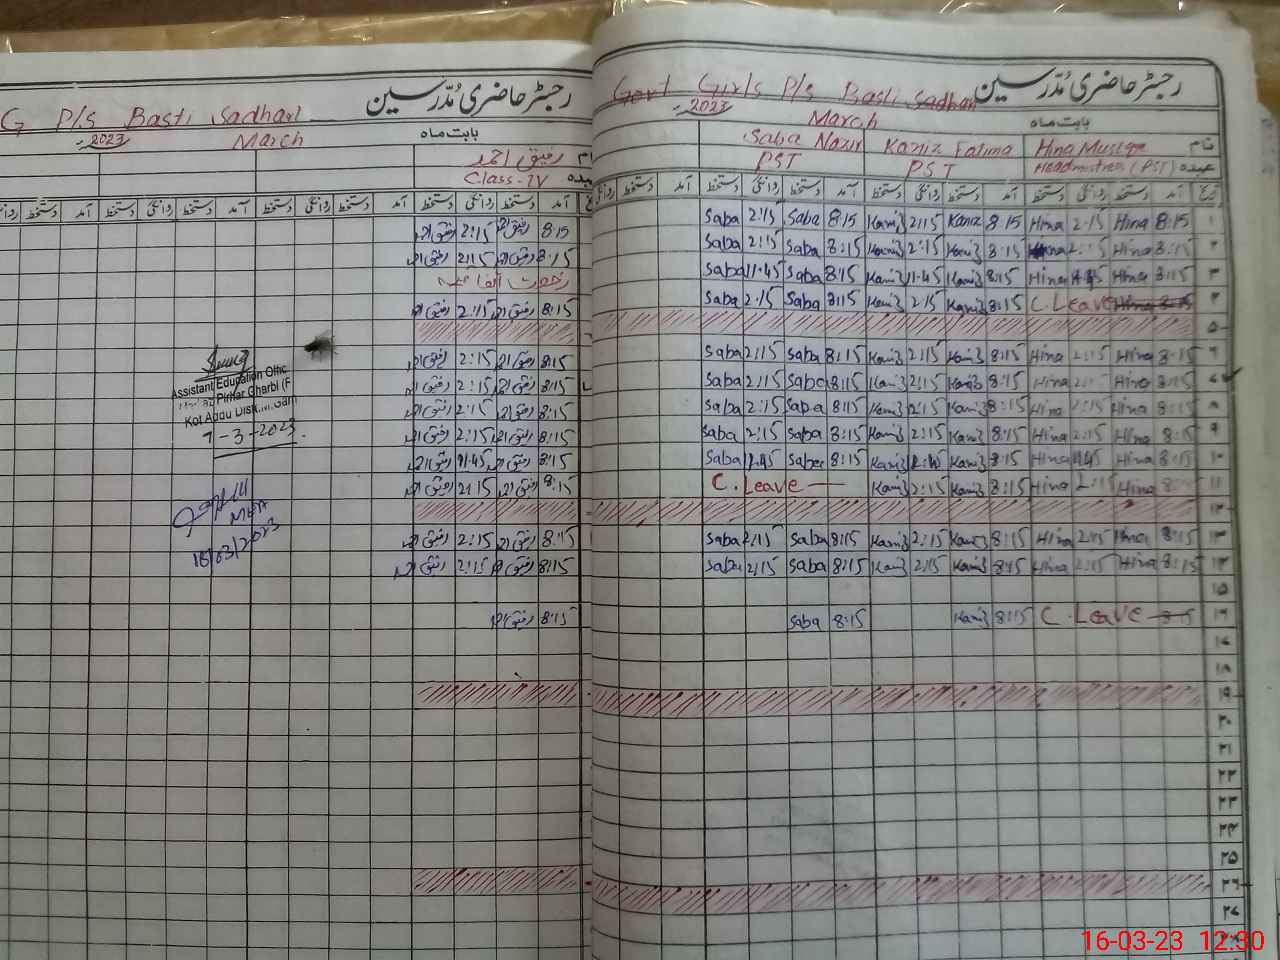 رجسٹر حاضری مُدّرسین
G P/s Basti Sadhari
2023 March بابت ماہ
رفیق احمد
Class-IV
آمد دستخط روانگی دستخط آمد دستخط روانگی دستخط آمد دستخط روانگی دستخط
8:15 رفیق احمد 2:15 رفیق احمد
8:15 رفیق احمد 2:15 رفیق احمد
رخصت اتفاقیہ
8:15 رفیق احمد 2:15 رفیق احمد
8:15 رفیق احمد 2:15 رفیق احمد
8:15 رفیق احمد 2:15 رفیق احمد
8:15 رفیق احمد 2:15 رفیق احمد
8:15 رفیق احمد 2:15 رفیق احمد
8:15 رفیق احمد 11:45 رفیق احمد
8:15 رفیق احمد 2:15 رفیق احمد
8:15 رفیق احمد 2:15 رفیق احمد
8:15 رفیق احمد 2:15 رفیق احمد
8:15 رفیق احمد
Assistant Education Offic
Pirhar Gharbi (F
Kot Addu
7-3-2023
MEA
16/03/2023
رجسٹر حاضری مُدّرسین
Govt Girls P/s Basti Sadhari
2023 March بابت ماہ
Saba Nazir Kaniz Fatima Hina Mustaqe نام
PST PST Headmistress (PST) عہدہ
تاریخ آمد دستخط روانگی دستخط آمد دستخط روانگی دستخط آمد دستخط روانگی دستخط آمد دستخط روانگی
Saba 2:15 Saba 8:15 Kaniz 2:15 Kaniz 8:15 Hina 2:15 Hina 8:15 ۱
Saba 2:15 Saba 8:15 Kaniz 2:15 Kaniz 8:15 Hina 2:15 Hina 8:15 ۲
Saba 11:45 Saba 8:15 Kaniz 11:45 Kaniz 8:15 Hina 11:45 Hina 8:15 ۳
Saba 2:15 Saba 8:15 Kaniz 2:15 Kaniz 8:15 C. Leave Hina 8:15 ۴
۵
Saba 2:15 Saba 8:15 Kaniz 2:15 Kaniz 8:15 Hina 2:15 Hina 8:15 ۶
Saba 2:15 Saba 8:15 Kaniz 2:15 Kaniz 8:15 Hina 2:15 Hina 8:15 ۷
Saba 2:15 Saba 8:15 Kaniz 2:15 Kaniz 8:15 Hina 2:15 Hina 8:15 ۸
Saba 2:15 Saba 8:15 Kaniz 2:15 Kaniz 8:15 Hina 2:15 Hina 8:15 ۹
Saba 11:45 Saba 8:15 Kaniz 11:45 Kaniz 8:15 Hina 11:45 Hina 8:15 ۱۰
C. Leave Kaniz 2:15 Kaniz 8:15 Hina 2:15 Hina 8:15 ۱۱
۱۲
Saba 2:15 Saba 8:15 Kaniz 2:15 Kaniz 8:15 Hina 2:15 Hina 8:15 ۱۳
Saba 2:15 Saba 8:15 Kaniz 2:15 Kaniz 8:15 Hina 2:15 Hina 8:15 ۱۴
۱۵
Saba 8:15 Kaniz 8:15 C. Leave 8:15 ۱۶
۱۸
۱۹
۲۰
۲۱
۲۲
۲۳
۲۴
۲۵
۲۶
۲۷
16-03-23 12:30